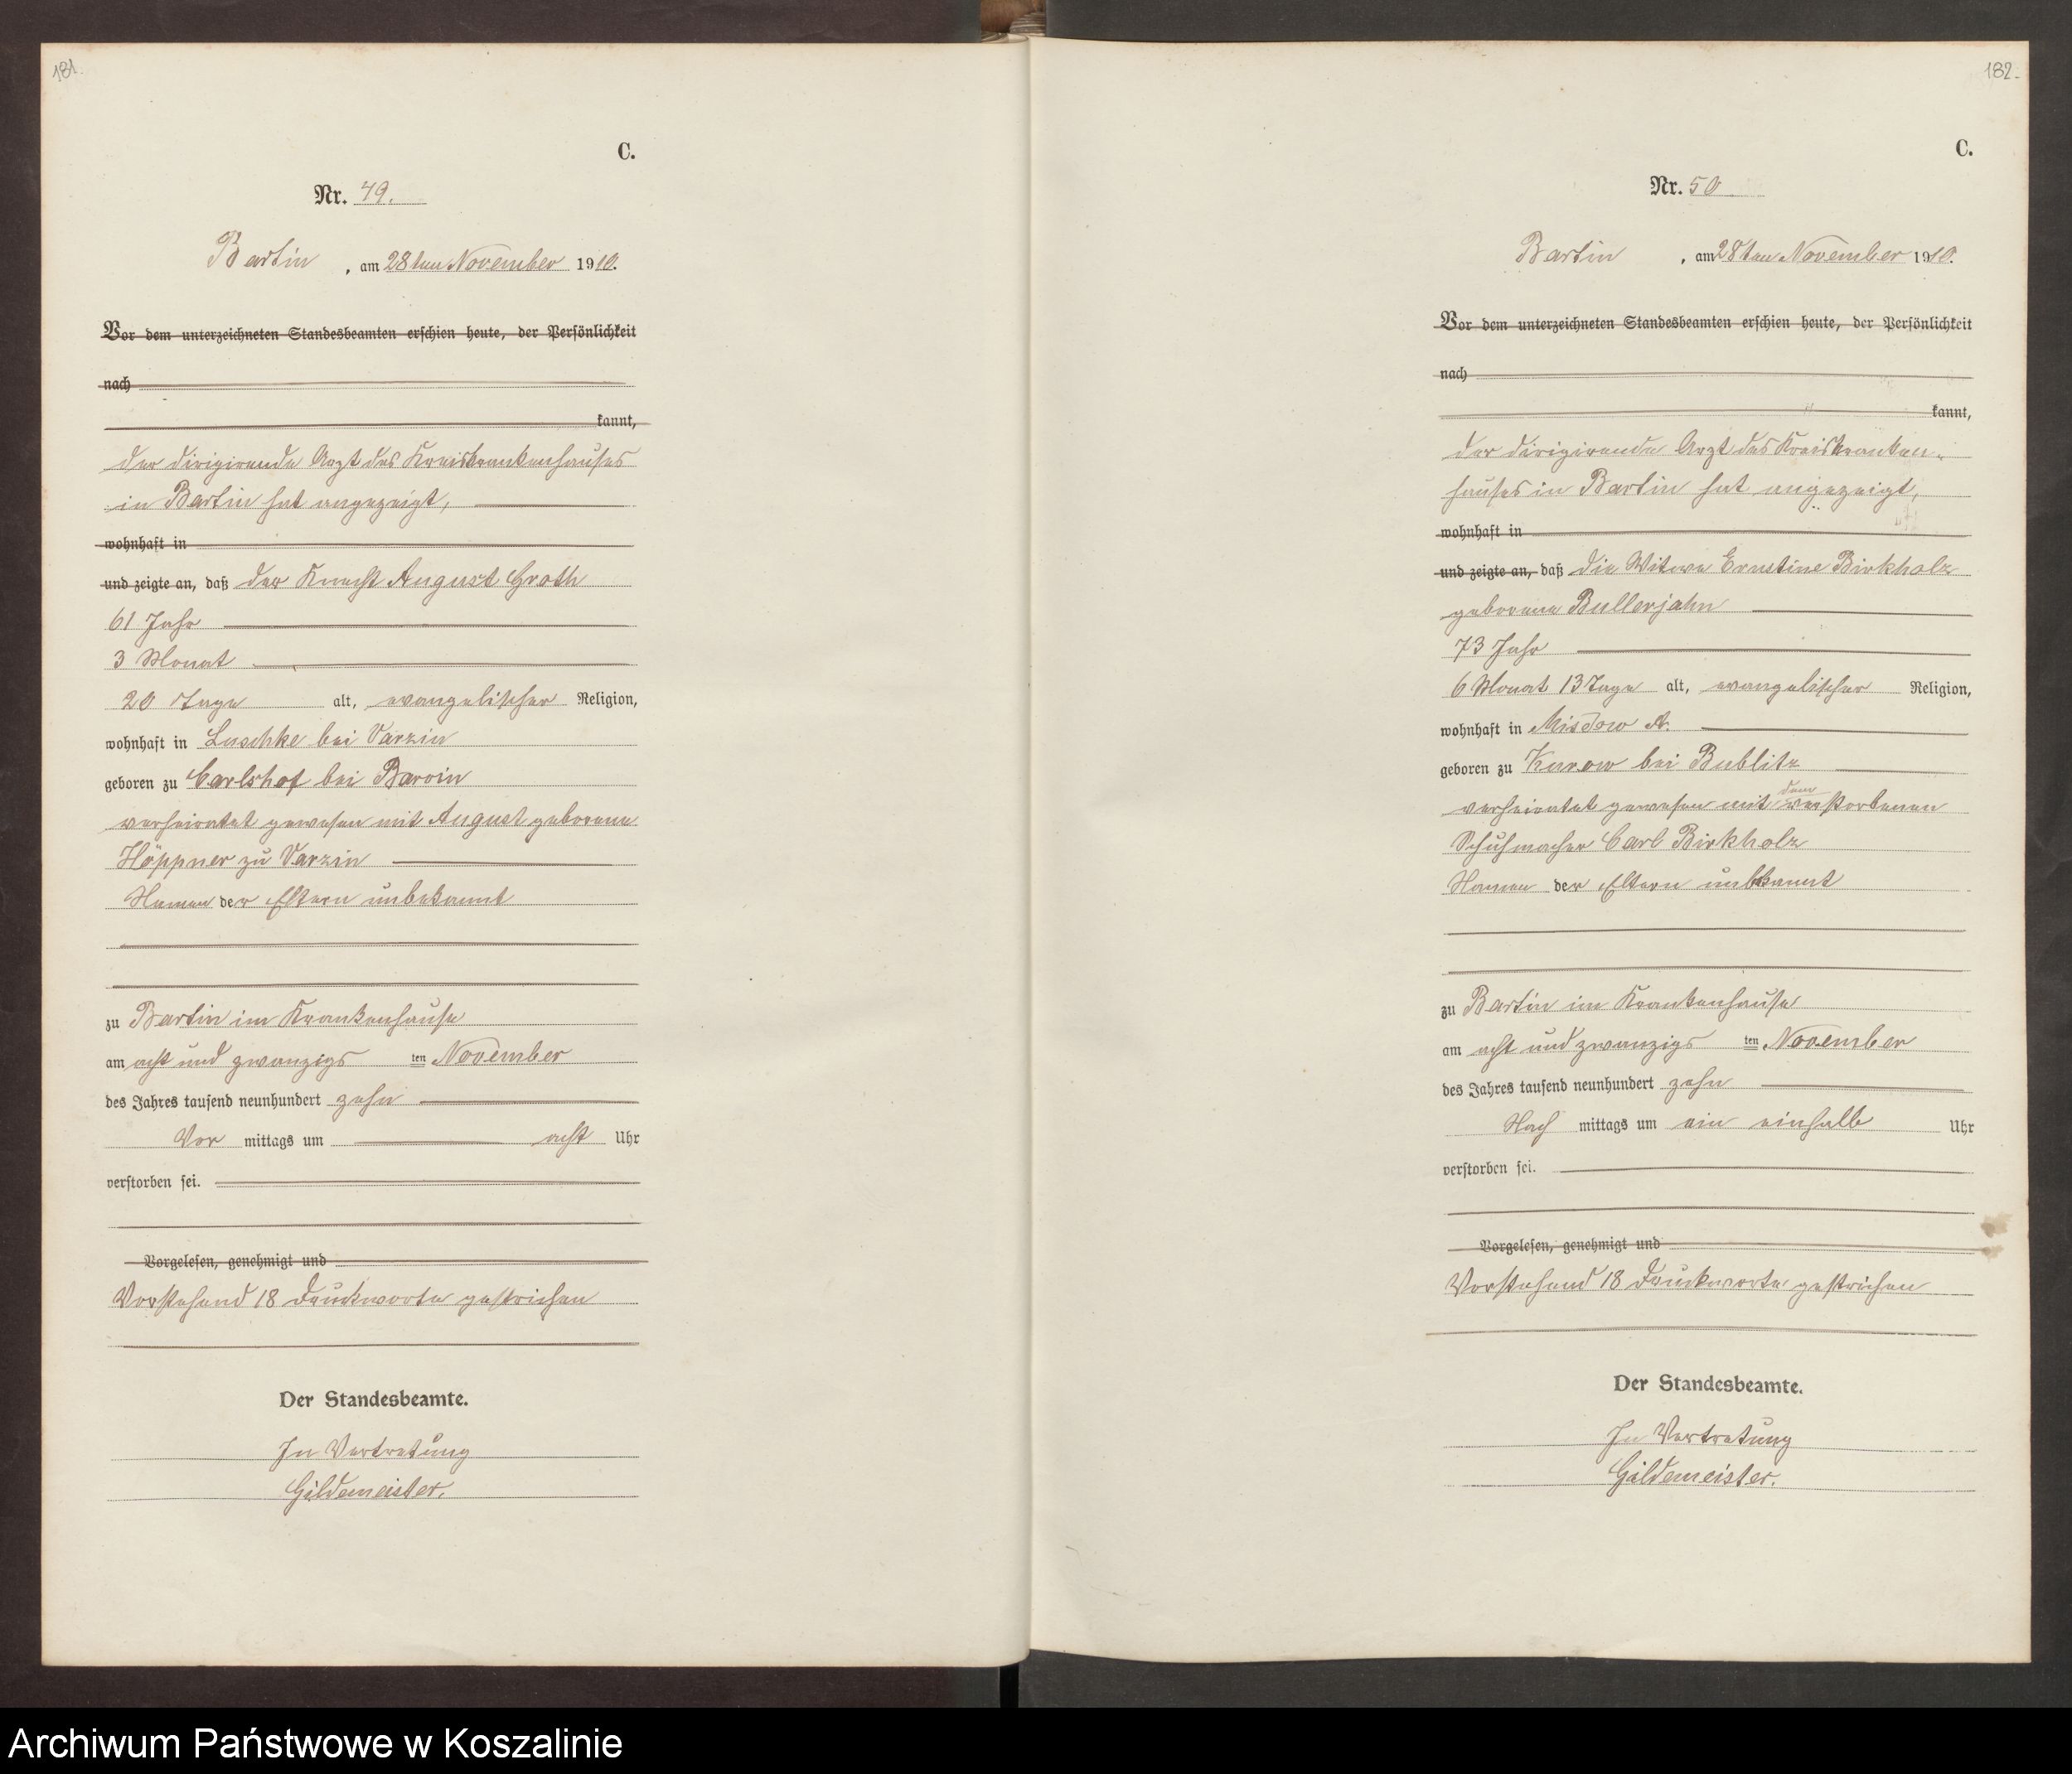 181.
C.
Nr. 49.
Bartin, am 28ten November 1910.
Vor dem unterzeichneten Standesbeamten erschien heute, der Persönlichkeit
nach
kannt,
der dirigirende Arzt des Kreiskrankenhauses
in Bartin hat angezeigt,
wohnhaft in
und zeigte an, daß der Knecht August Groth
61 Jahr
3 Monat
20 Tage alt, evangelischer Religion,
wohnhaft in Luschke bei Varzin
geboren zu Carlshof bei Barvin
verheiratet gewesen mit August geborene
Höppner zu Varzin
Namen der Eltern unbekannt
zu Bartin im Krankenhause
am acht und zwanzigs ten November
des Jahres tausend neunhundert zehn
Vor mittags um acht Uhr
verstorben sei.
Vorgelesen, genehmigt und
Vorstehend 18 Druckworte gestrichen
Der Standesbeamte.
In Vertretung
Gildemeister.
182.
C.
Nr. 50
Bartin, am 28ten November 1910.
Vor dem unterzeichneten Standesbeamten erschien heute, der Persönlichkeit
nach
kannt,
der dirigirende Arzt des Kreiskranken-
hauses in Bartin hat angezeigt,
wohnhaft in
und zeigte an, daß die Witwe Ernstine Birkholz
geborene Bullerjahn
73 Jahr
6 Monat 13 Tage alt, evangelischer Religion,
wohnhaft in Misdow A.
geboren zu Kurow bei Bublitz
verheiratet gewesen mit dem verstorbenen
Schuhmacher Carl Birkholz
Namen der Eltern unbekannt
zu Bartin im Krankenhause
am acht und zwanzigs ten November
des Jahres tausend neunhundert zehn
Nach mittags um ein einhalb Uhr
verstorben sei.
Vorgelesen, genehmigt und
Vorstehend 18 Druckworte gestrichen
Der Standesbeamte.
In Vertretung
Gildemeister.
Archiwum Państwowe w Koszalinie